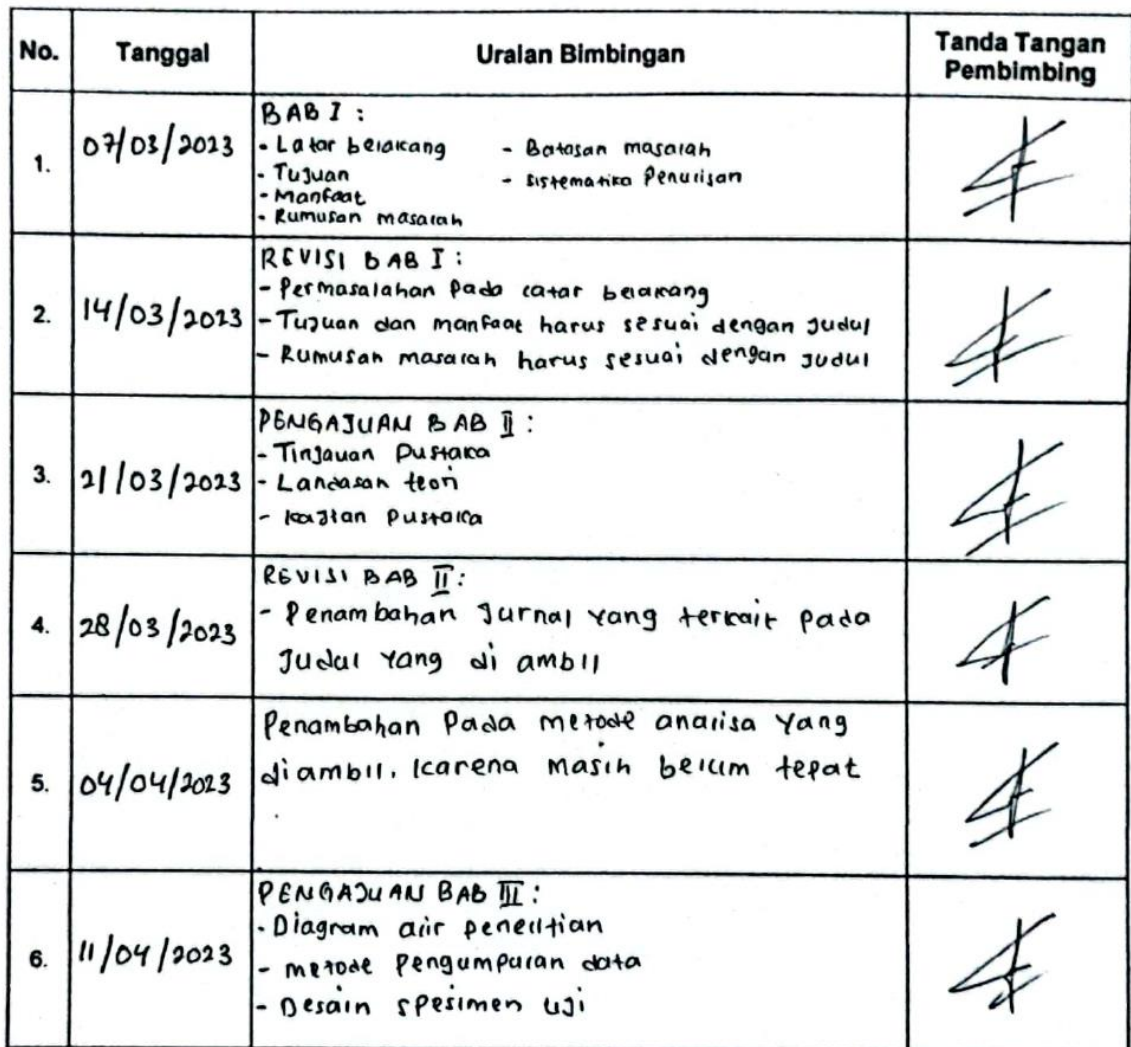 No. Tanggal Uraian Bimbingan Tanda Tangan Pembimbing
1. 07/03/2023
BAB I :
- Latar belakang - Batasan masalah
- Tujuan - Sistematika Penulisan
- Manfaat
- Rumusan masalah
2. 14/03/2023
REVISI BAB I :
- Permasalahan pada latar belakang
- Tujuan dan manfaat harus sesuai dengan Judul
- Rumusan masalah harus sesuai dengan Judul
3. 21/03/2023
PENGAJUAN BAB II :
- Tinjauan Pustaka
- Landasan teori
- Kajian Pustaka
4. 28/03/2023
REVISI BAB II :
- Penambahan Jurnal yang terkait pada
Judul yang di ambil
5. 04/04/2023
Penambahan Pada metode analisa yang
diambil. karena masih belum tepat
6. 11/04/2023
PENGAJUAN BAB III :
- Diagram alir penelitian
- metode Pengumpulan data
- Desain spesimen uji